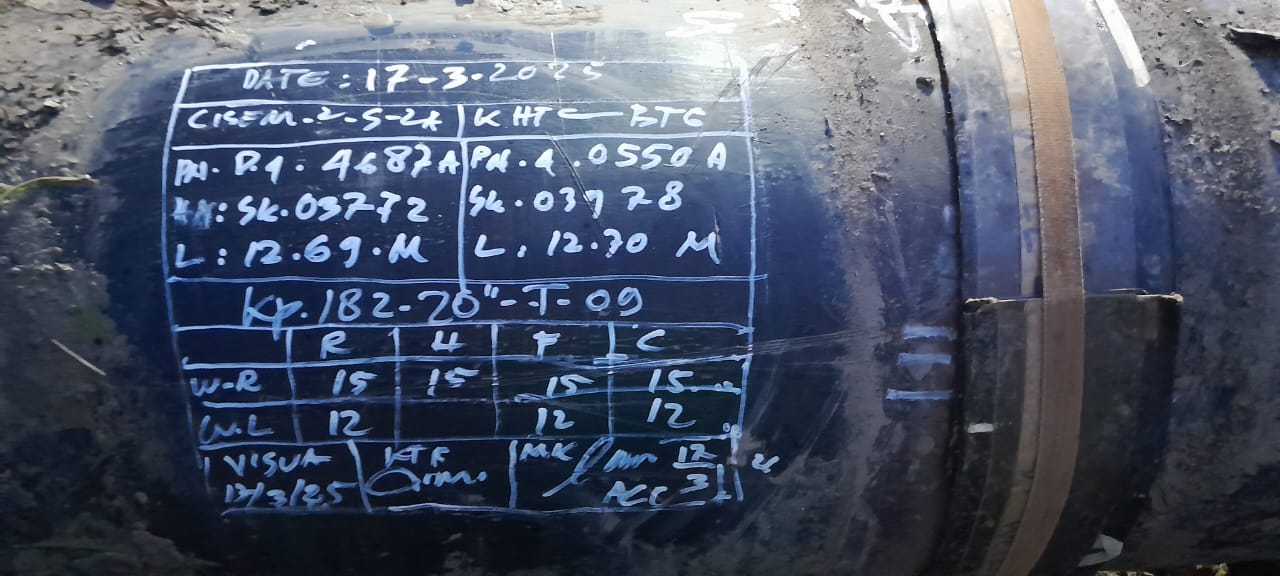 DATE: 17-3-2025
CISEM-2-S-2A KHTC-BTG
PN. P.9. 4687A PN. 9. 0550 A
SK. 03772 SK. 03778
L: 12.69.M L. 12.70 M
KP. 182-20"-T-09
R H F C
W-R 15 15 15 15
W.L 12 12 12
VISUA KTF MK 17
17/3/25 ACC 3